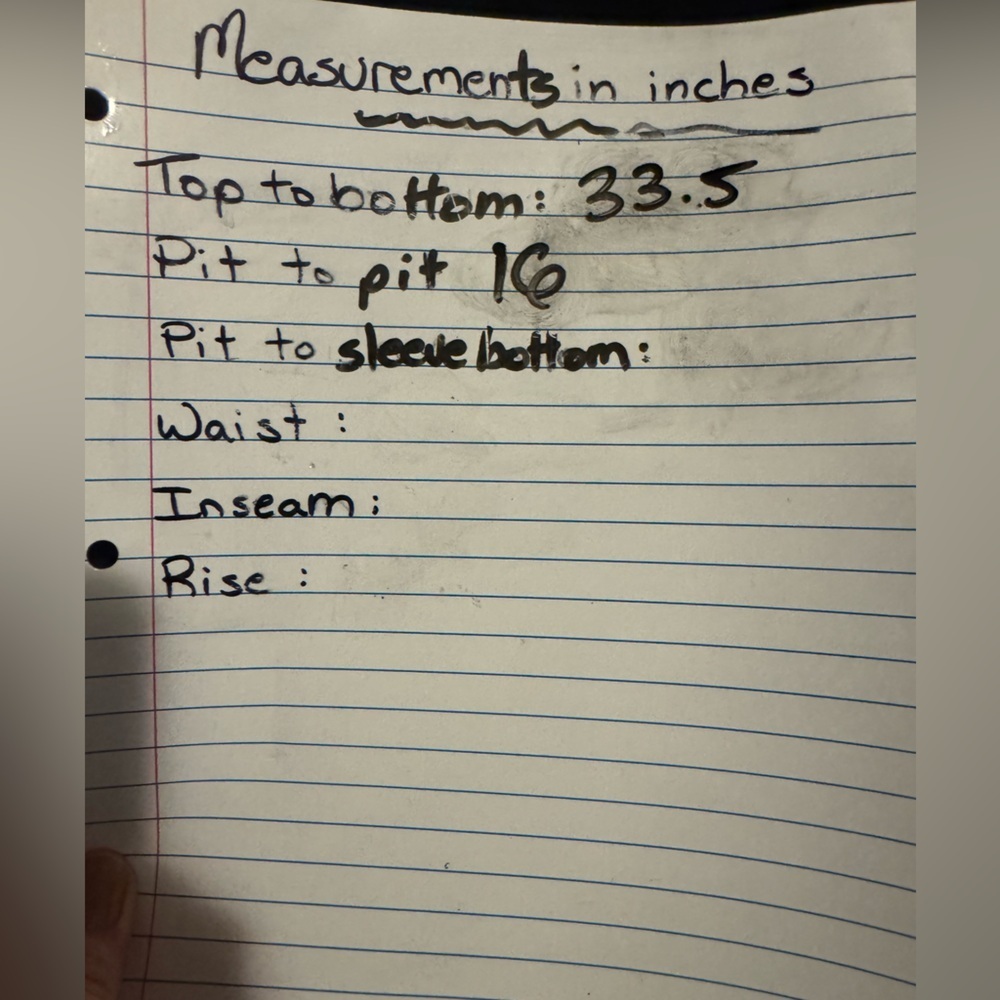 Measurements in inches
Top to bottom: 33.5
Pit to pit 16
Pit to sleeve bottom:
Waist :
Inseam :
Rise :